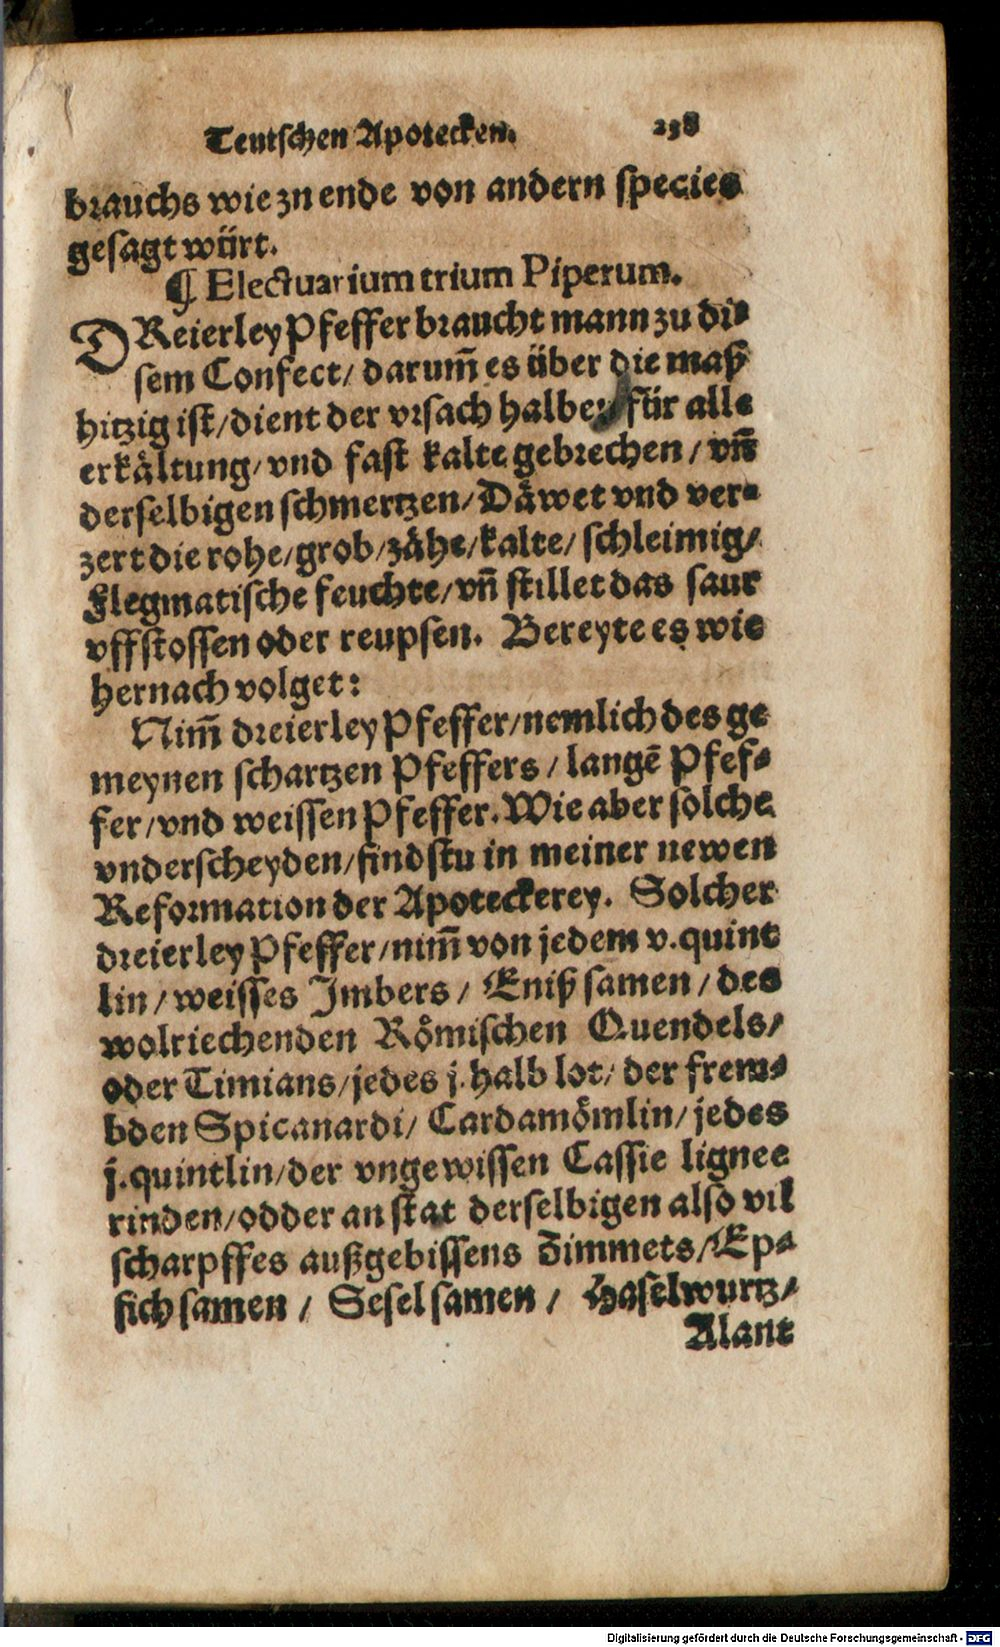 Teutschen Apotecken. 238
brauchs wie zu ende von andern species
gesagt würt.
¶ Electuarium trium Piperum.
DReierley Pfeffer braucht mann zu di⸗
sem Confect/ darum̃ es über die maß
hitzig ist/dient der vrsach halben für alle
erkältung/vnd fast kalte gebrechen/vñ
derselbigen schmertzen/Däwet vnd ver⸗
zert die rohe/grob/zähe/kalte/schleimig/
Flegmatische feuchte/vñ stillet das saur
vffstossen oder reupsen. Bereyte es wie
hernach volget:
Nim̃ dreierley Pfeffer/nemlich des ge
meynen schartzen Pfeffers/langẽ Pfef⸗
fer/vnd weissen Pfeffer. Wie aber solche
vnderscheyden/findstu in meiner newen
Reformation der Apoteckerey. Solcher
dreierley Pfeffer/nim̃ von jedem v.quint
lin/weisses Jmbers/Eniß samen/des
wolriechenden Römischen Quendels/
oder Timians/jedes j.halb lot/der frem⸗
bden Spicanardi/Cardamömlin/jedes
j.quintlin/der vngewissen Cassie lignee
rinden/odder an stat derselbigen also vil
scharpffes außgebissens Zimmets/Ep⸗
fich samen/Sesel samen/Haselwurtz/
Alant
Digitalisierung gefördert durch die Deutsche Forschungsgemeinschaft - DFG